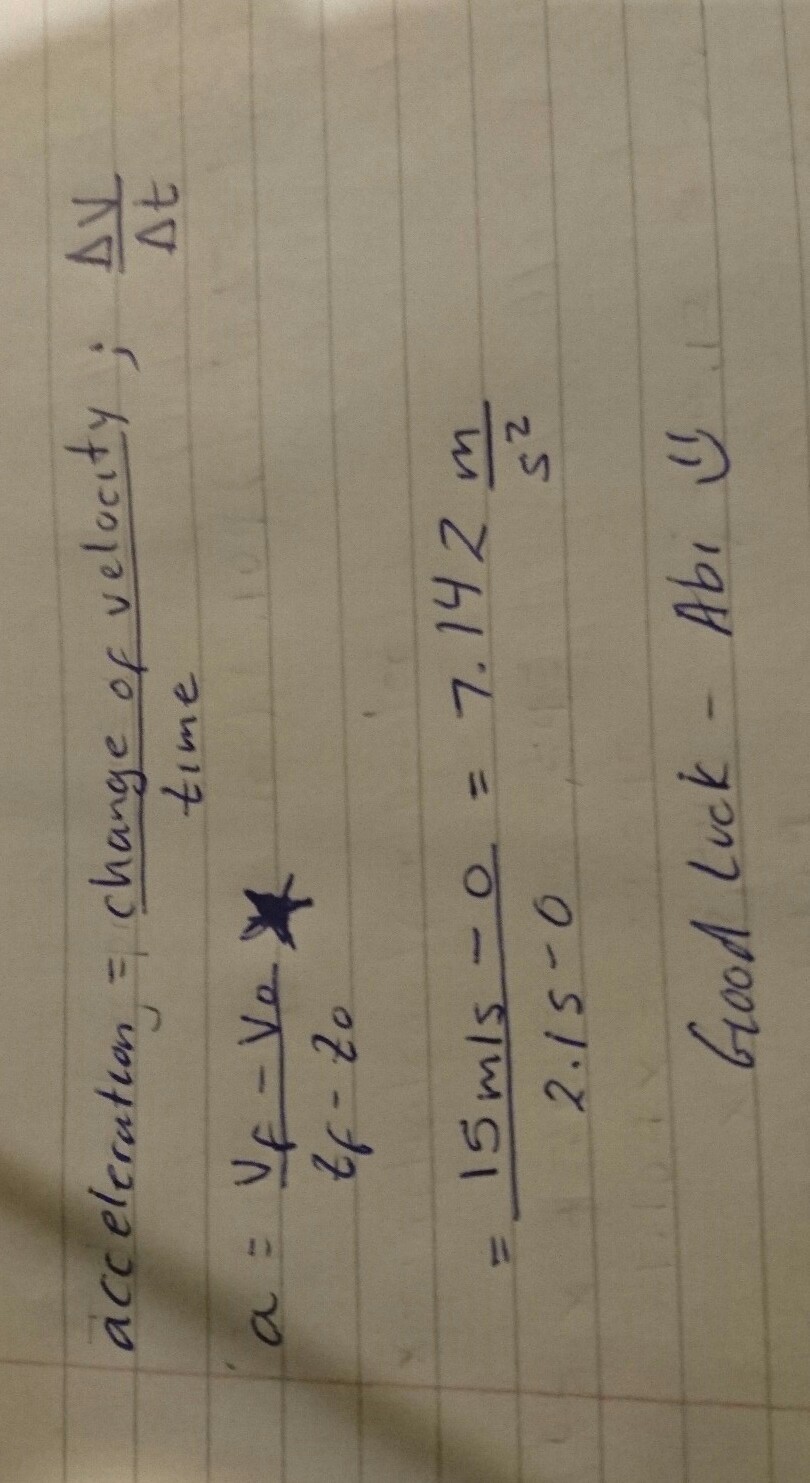 acceleration = change of velocity ; ΔV
time Δt
a = Vf - Vo ★
tf - to
= 15 m/s - 0 = 7.142 m
2.1s - 0 s²
Good Luck - Abi :)